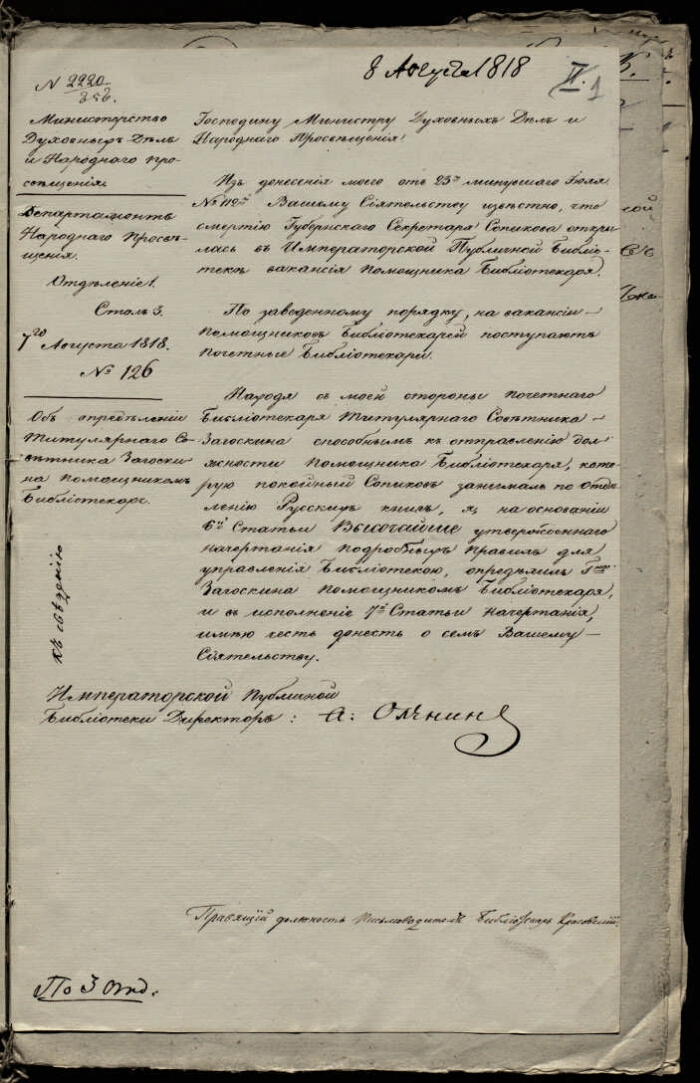 8 Августа 1818
N 2220
II. 1
Министерство
Духовныхъ Дѣлъ
и Народнаго Про-
свѣщенія.
Департаментъ
Народнаго Просвѣ-
щенія.
Отдѣленіе 1.
Столъ 3.
7го Августа 1818.
№ 126
Объ опредѣленіи
Титулярнаго Со-
вѣтника Загоски-
на помощникомъ
Библіотекаря.
къ свѣденію
Господину Министру Духовныхъ Дѣлъ и
Народнаго Просвѣщенія.
Изъ донесенія моего отъ 25го минувшаго Іюля
Вашему Сіятельству извѣстно, что
смертію Губернскаго Секретаря Сопикова откры-
лась въ Императорской Публичной Библіо-
текѣ вакансія Помощника Библіотекаря.
По заведенному порядку, на вакансіи
Помощниковъ Библіотекарей поступаютъ
Почетные Библіотекари.
Находя съ моей стороны почетнаго
Библіотекаря Титулярнаго Совѣтника
Загоскина способнымъ къ отправленію дол-
жности Помощника Библіотекаря, кото-
рую покойный Сопиковъ занималъ по Отдѣ-
ленію Русскихъ книгъ, я, на основаніи
6й Статьи Высочайше утвержденнаго
начертанія подробныхъ правилъ для
управленія Библіотекою, опредѣлилъ Гна
Загоскина Помощникомъ Библіотекаря,
и въ исполненіе 7й Статьи Начертанія,
имѣю честь донесть о семъ Вашему
Сіятельству.
Императорской Публичной
Библіотеки Директоръ: А. Оленинъ
Правящій должность Письмоводителя Библіотекарь Красовскій
По 3 Отд.